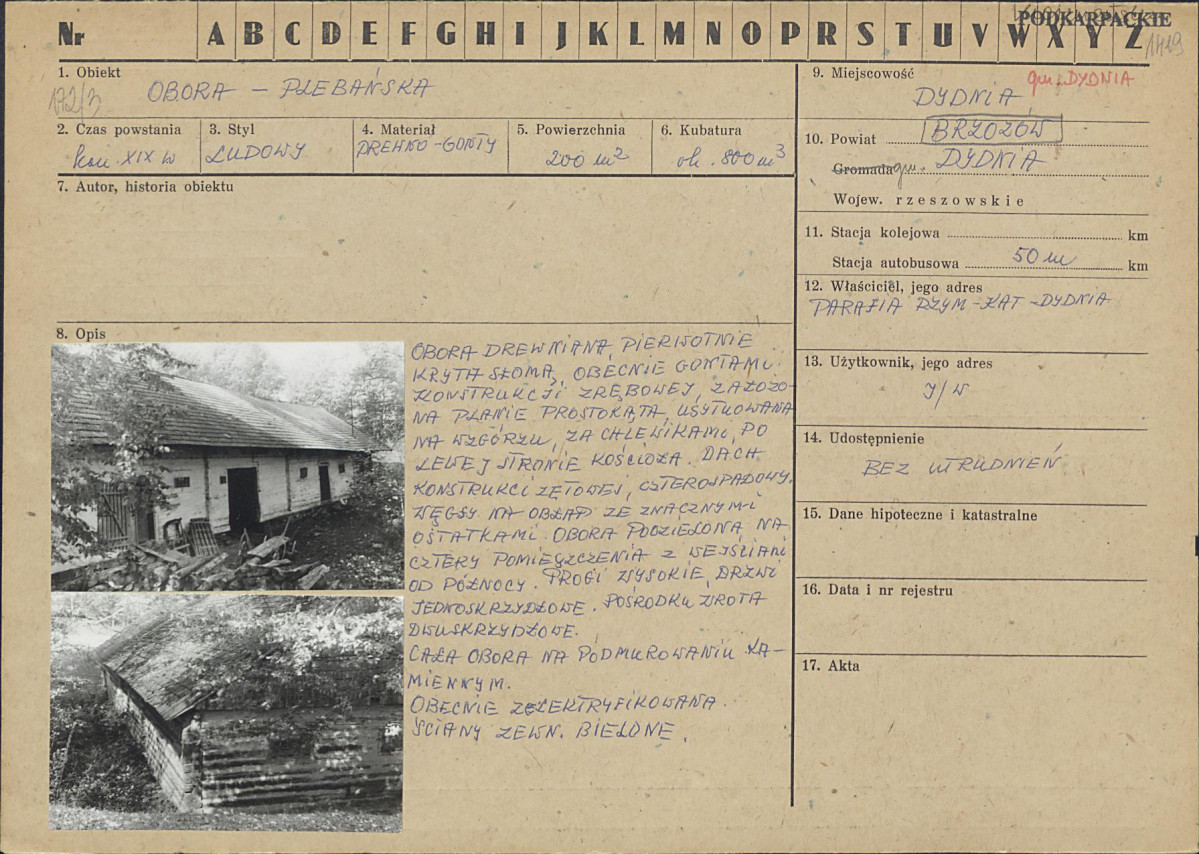 Nr A B C D E F G H I J K L M N O P R S T U V W X Y Z
PODKARPACKIE
1419
1. Obiekt
172/3
OBORA – PLEBAŃSKA
2. Czas powstania
kon. XIX w
3. Styl
LUDOWY
4. Materiał
DREWNO-GONTY
5. Powierzchnia
200 m2
6. Kubatura
ok. 800 m3
7. Autor, historia obiektu
8. Opis
OBORA DREWNIANA, PIERWOTNIE
KRYTA SŁOMĄ, OBECNIE GONTAMI.
KONSTRUKCJI ZRĘBOWEJ, ZAŁOŻO-
NA PLANIE PROSTOKĄTA, USYTUOWANA
NA WZGÓRZU, ZA CHLEWIKAMI, PO
LEWEJ STRONIE KOŚCIOŁA. DACH
KONSTRUKCI ZĘTOWEJ, CZTEROSPADOWY.
WĘGŁY NA OBŁAP ZE ZNACZNYMI
OSTATKAMI. OBORA PODZIELONA NA
CZTERY POMIESZCZENIA Z WEJŚCIAMI
OD PÓŁNOCY. PROGI WYSOKIE, DRZWI
JEDNOSKRZYDŁOWE. POŚRODKU WROTA
DWUSKRZYDŁOWE.
CAŁA OBORA NA PODMUROWANIU KA-
MIENNYM.
OBECNIE ZELEKTRYFIKOWANA.
ŚCIANY ZEWN. BIELONE.
9. Miejscowość
gm. DYDNIA
DYDNIA
10. Powiat BRZOZÓW
Gromada gm. DYDNIA
Wojew. rzeszowskie
11. Stacja kolejowa km
Stacja autobusowa 50 m km
12. Właściciel, jego adres
PARAFIA RZYM-KAT-DYDNIA
13. Użytkownik, jego adres
J/W
14. Udostępnienie
BEZ UTRUDNIEŃ
15. Dane hipoteczne i katastralne
16. Data i nr rejestru
17. Akta